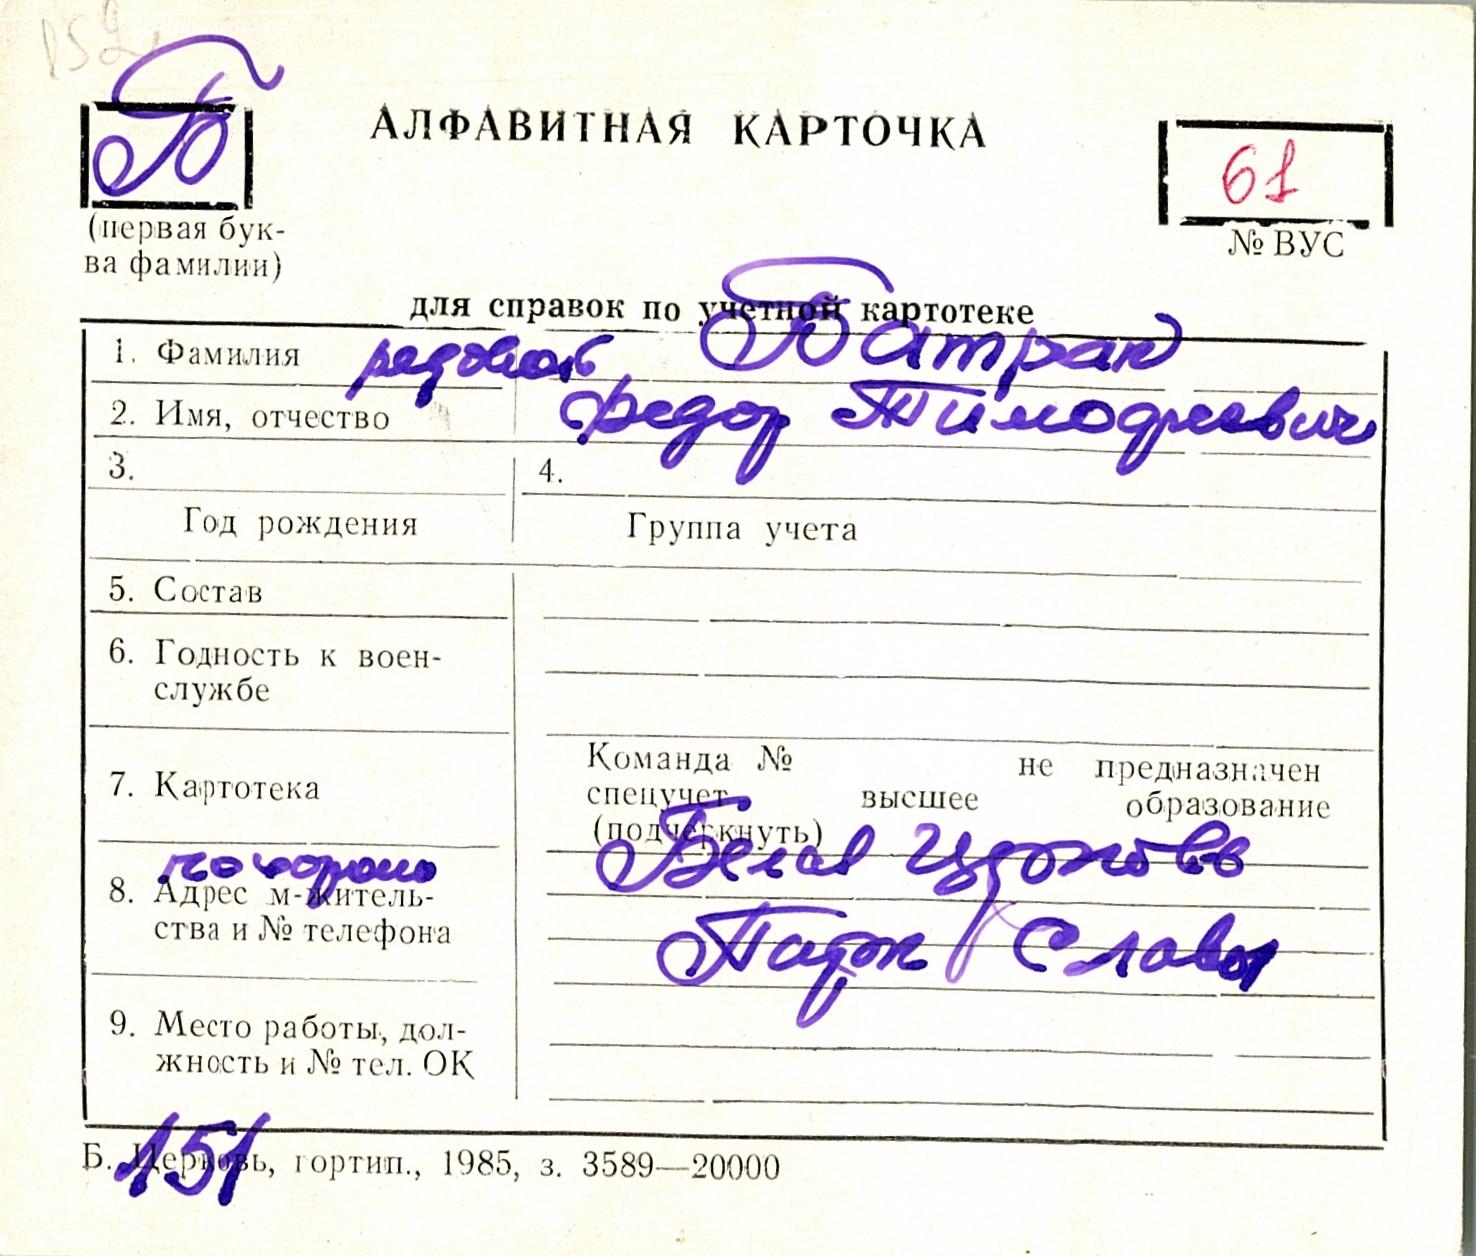 152
Б
АЛФАВИТНАЯ КАРТОЧКА
61
(первая бук-
ва фамилии)
№ ВУС
для справок по учетной картотеке
1. Фамилия рядовой Батрак
2. Имя, отчество Федор Тимофеевич
3. 4.
Год рождения Группа учета
5. Состав
6. Годность к воен-
службе
7. Картотека
Команда № не предназначен
спецучет высшее образование
(подчеркнуть)
похорон Белая Церковь
8. Адрес м-житель-
ства и № телефона
Парк Славы
9. Место работы, дол-
жность и № тел. ОК
151
Б. Церковь, гортип., 1985, з. 3589—20000